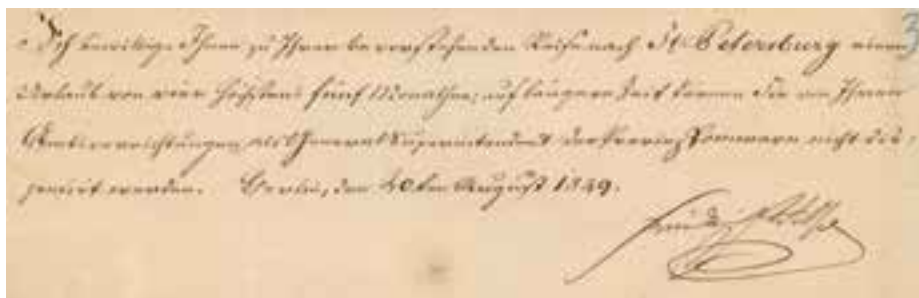 Ich bewillige Ihnen zu Ihrer bevorstehenden Reise nach St. Petersburg einen
Urlaub von vier höchstens fünf Monathen; auf längere Zeit können Sie von Ihren
Amtsverrichtungen als General Superintendent der Provinz Pommern nicht dis¬
pensirt werden. Berlin, den 20ten August 1829.